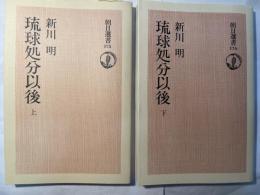 朝日選書
175
新川 明
琉球処分以後
上
朝日選書
176
新川 明
琉球処分以後
下